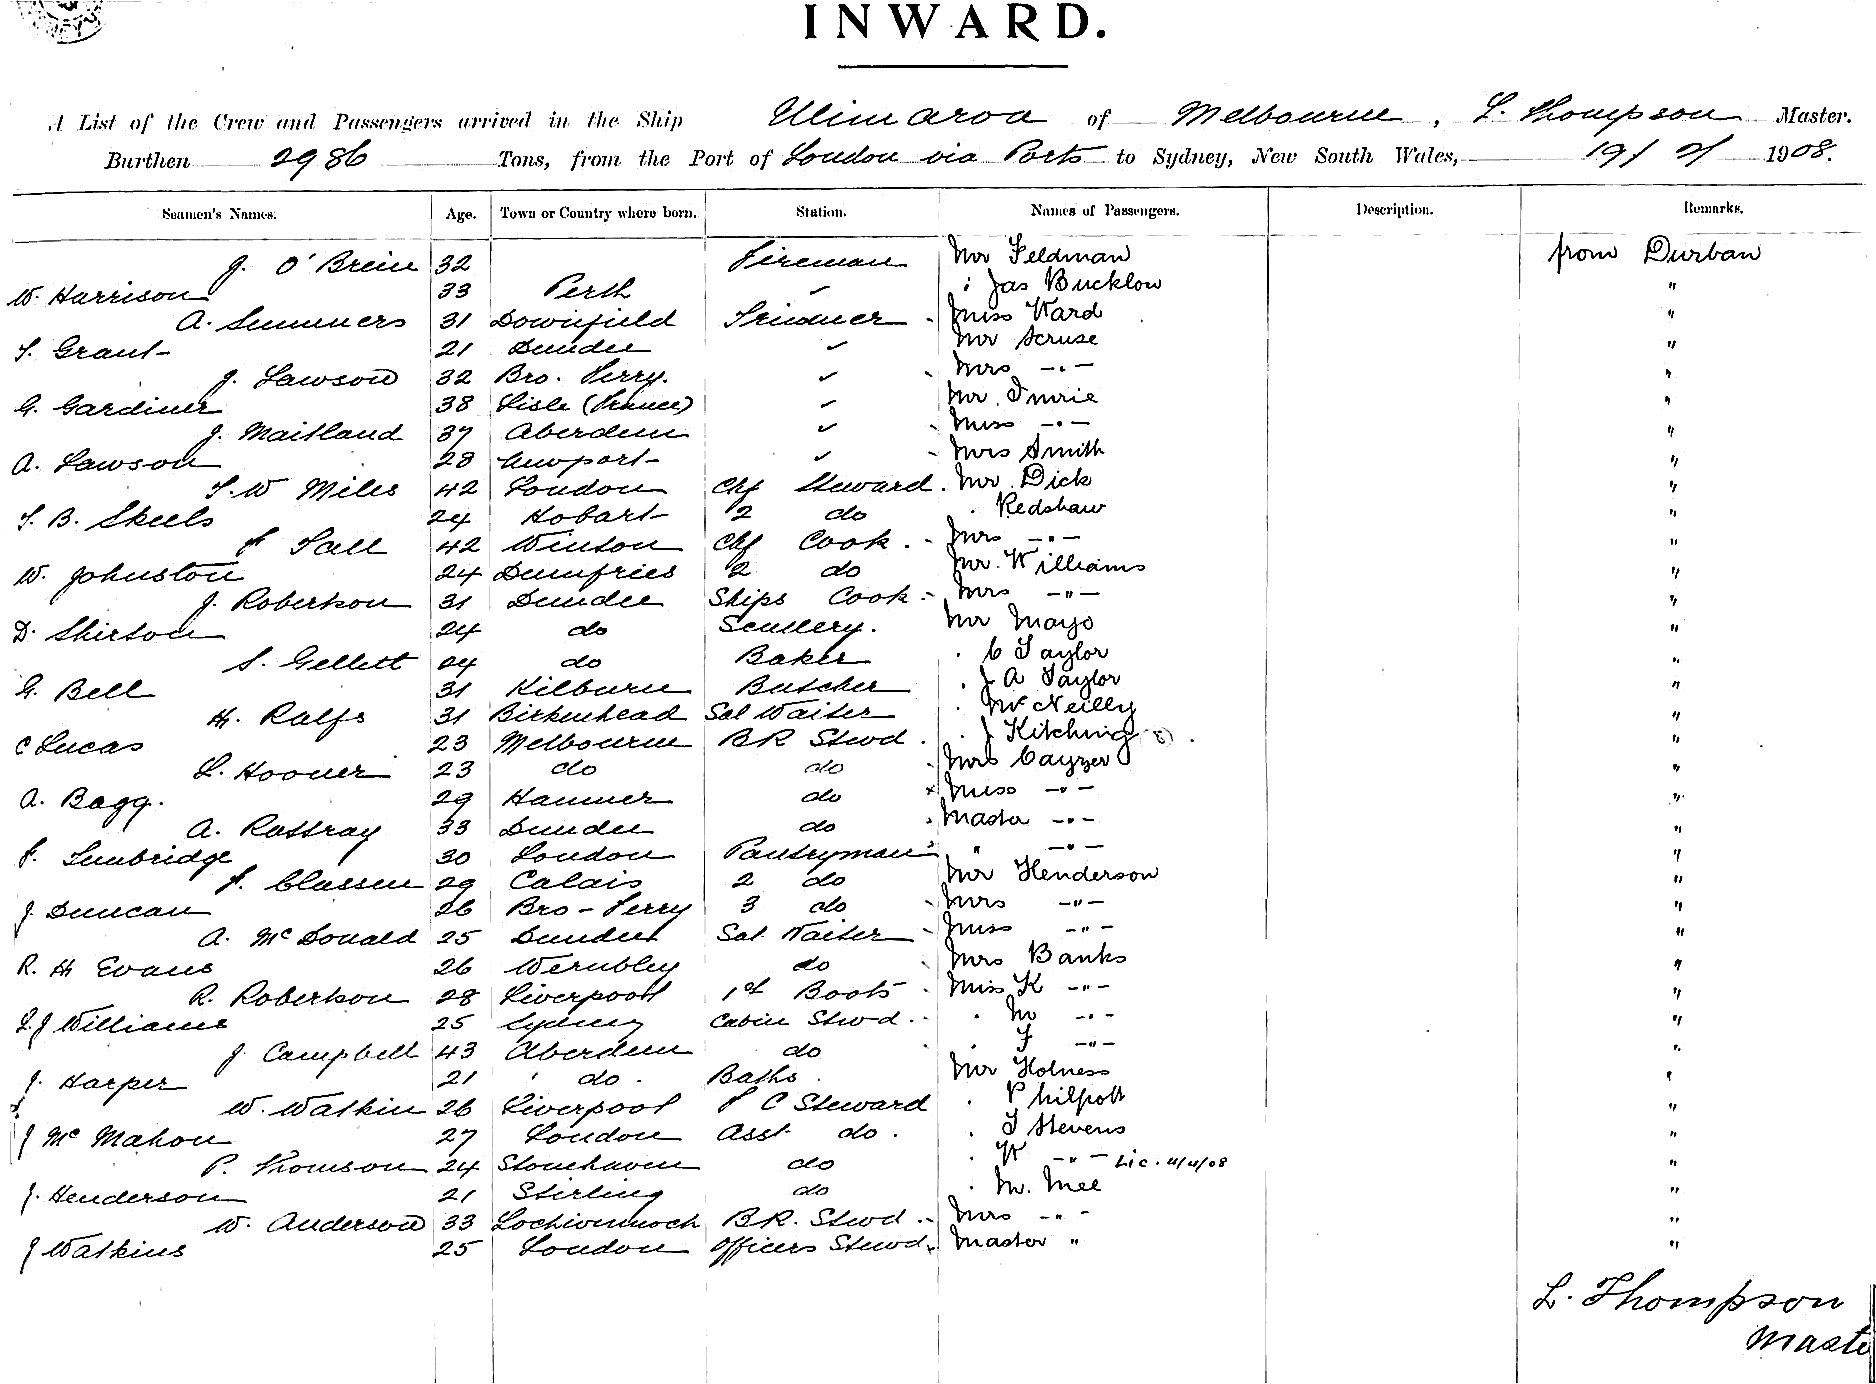 INWARD.
A List of the Crew and Passengers arrived in the Ship Ulimaroa of Melbourne, L. Thompson Master.
Burthen 2986 Tons, from the Port of London via Ports to Sydney, New South Wales, 19/2/1908.
Seamen's Names. Age. Town or Country where born. Station. Names of Passengers. Description. Remarks.
J. O'Brein 32 Fireman Mr Feldman from Durban
W. Harrison 33 Perth " Jas Bucklow "
A. Summers 31 Downfield Trimmer Miss Ward "
T. Grant 21 Dundee Mr Scruse "
J. Lawson 32 Bro. Ferry. Mrs -"- "
G. Gardiner 38 Lisle (France) Mr. Imrie "
J. Maitland 37 Aberdeen Miss -"- "
A. Lawson 28 Newport Mrs Smith "
T. W Miles 42 London Chf Steward. Mr. Dick "
T. B. Skeels 24 Hobart 2 do Redshaw "
F Sall 42 Winton Chf Cook. Mrs -"- "
W. Johnston 24 Dumfries 2 do Mr. Williams "
J. Robertson 31 Dundee Ships Cook. Mrs -"- "
D. Shirton 24 do Scullery. Mr Mayo "
S. Gellett 24 do Baker C Taylor "
G. Bell 31 Kilburn Butcher J A Taylor "
H. Ralfs 31 Birkenhead Sal Waiter McNeilly "
C Lucas 23 Melbourne B R Stwd. J Kitching "
L. Hooner 23 do do Mrs Cayzer "
A. Bagg. 29 Hanmer do Miss -"- "
A. Rattray 33 Dundee do Master -"- "
F. Tunbridge 30 London Pantryman " -"- "
F. Classen 29 Calais 2 do Mr Henderson "
J. Duncan 26 Bro-Ferry 3 do Mrs -"- "
A. McDonald 25 Dundee Sal Waiter Miss -"- "
R. H Evans 26 Wembley do Mrs Banks "
R. Robertson 28 Liverpool 1st Boots Miss K -"- "
L. J Williams 25 Sydney Cabin Stwd. M -"- "
J Campbell 43 Aberdeen do F -"- "
J. Harper 21 do. Baths Mr Holness "
W. Watkin 26 Liverpool F C Steward Philpott "
J McMahon 27 London Asst do. J Stevens "
P. Thomson 24 Stonehaven do W -"- Lic. 4/4/08 "
J. Henderson 21 Stirling do M. Mee "
W. Anderson 33 Lochwinnoch B.R. Stwd. Mrs -"- "
J Watkins 25 London Officers Stwd. Master " "
L. Thompson
Maste